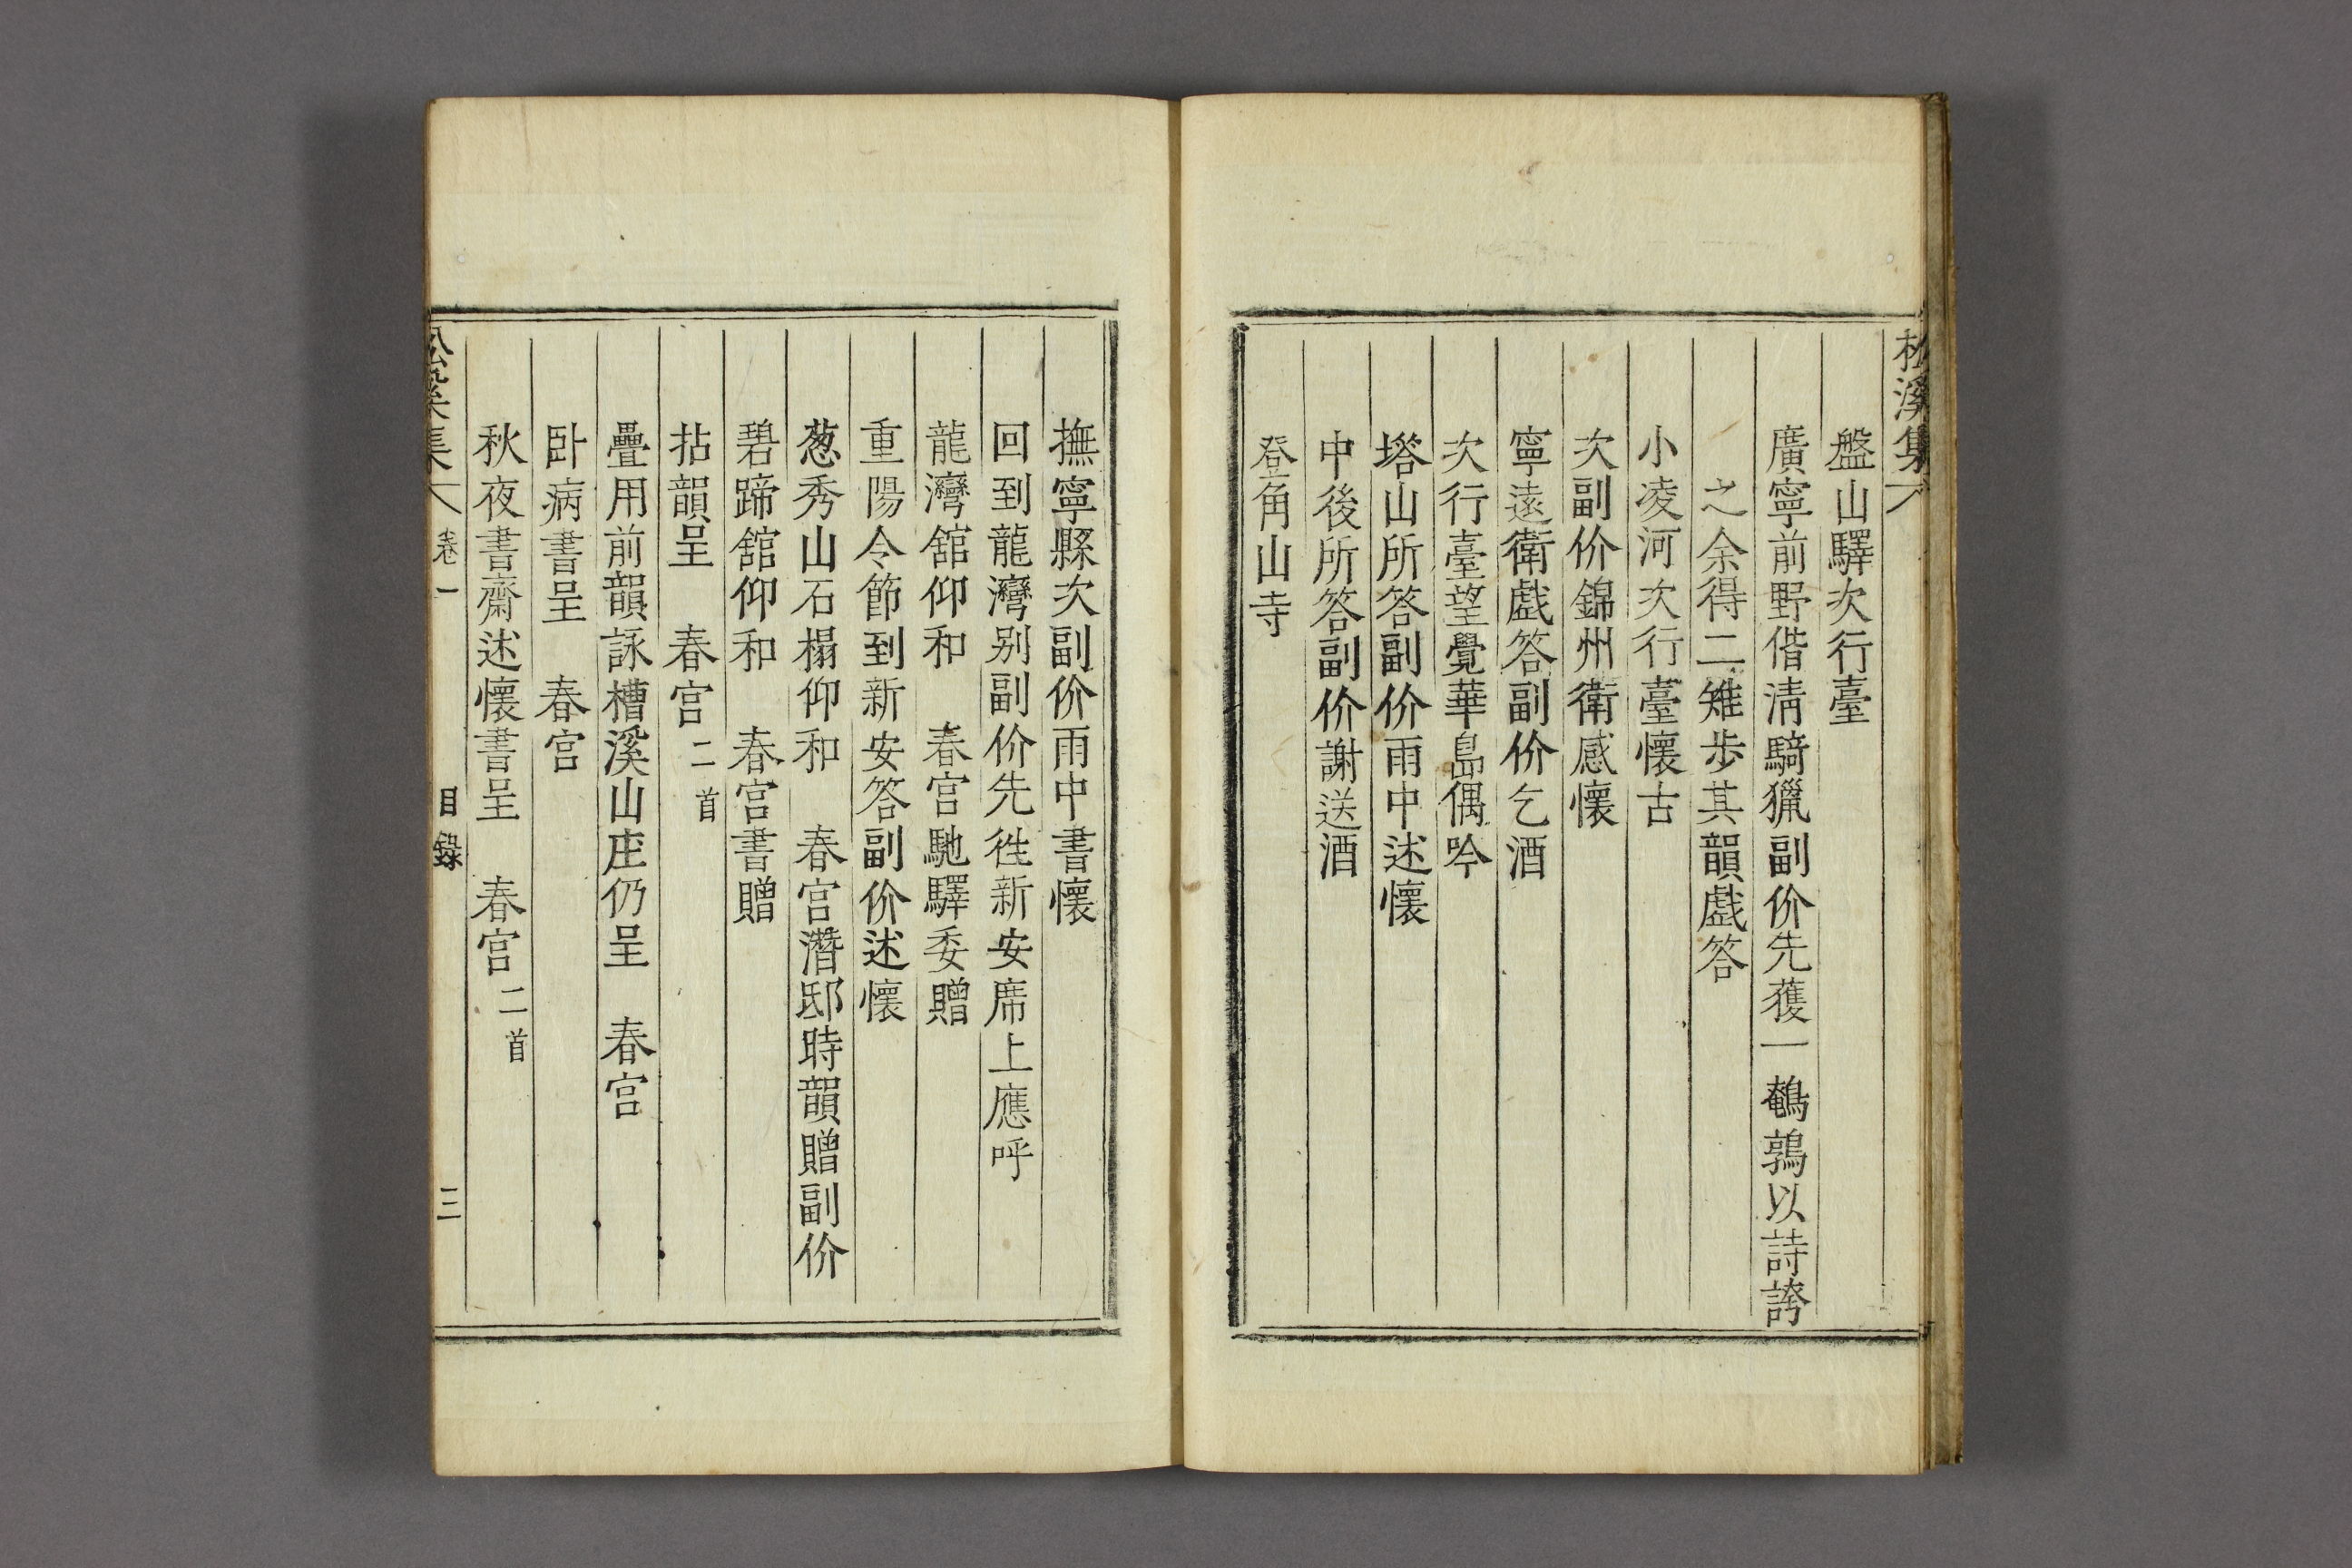 松溪集
盤山驛次行臺
廣寧前野偕淸騎獵副价先獲一鵪鶉以詩誇
之余得二雉步其韻戲答
小凌河次行臺懷古
次副价錦州衛感懷
寧遠衛戲答副价乞酒
次行臺望覺華島偶吟
塔山所答副价雨中述懷
中後所答副价謝送酒
登角山寺
撫寧縣次副价雨中書懷
回到龍灣別副价先徃新安席上應呼
龍灣舘仰和 春宮馳驛委贈
重陽令節到新安答副价述懷
葱秀山石榻仰和 春宮潛邸時韻贈副价
碧蹄舘仰和 春宮書贈
拈韻呈 春宮二首
疊用前韻詠槽溪山庄仍呈 春宮
卧病書呈 春宮
秋夜書齋述懷書呈 春宮二首
松溪集 卷一 目錄 三